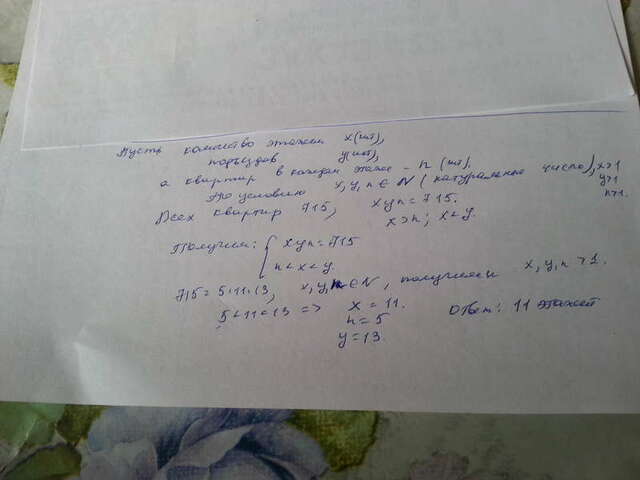 Пусть количество этажей x(шт),
подъездов y(шт),
а квартир в каждом этаже - n (шт),
По условию x, y, n ∈ N (натуральное число), x>1
y>1
n>1.
Всех квартир 715, xyn = 715.
x > n; x < y.
Получили: { xyn = 715
n < x < y.
715 = 5·11·13, x, y, n ∈ N, получили x, y, n > 1.
5 < 11 < 13 => x = 11. Ответ: 11 этажей
n = 5
y = 13.